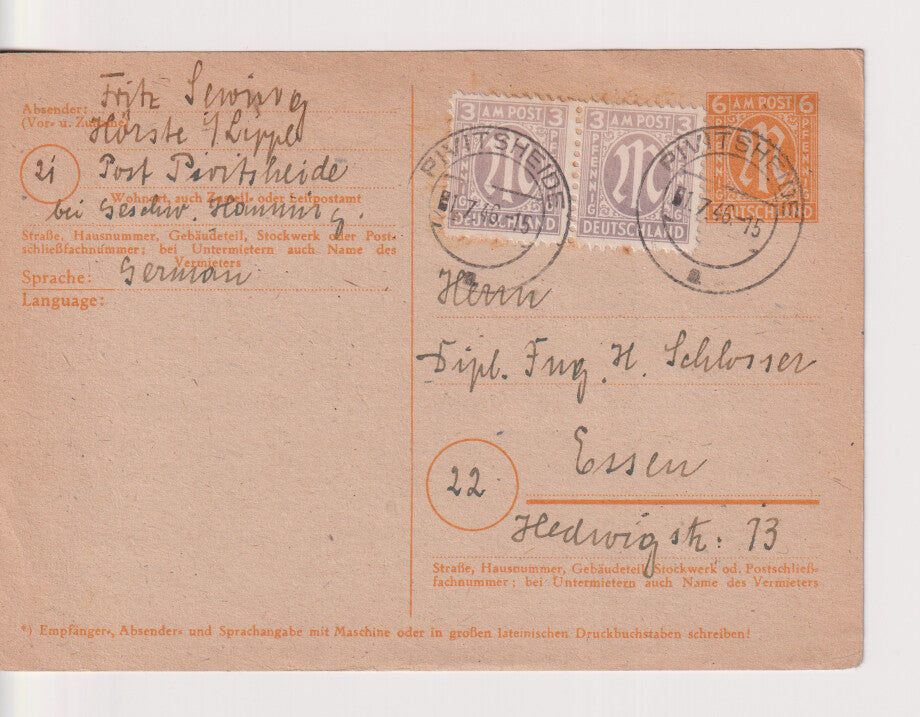 Absender:
(Vor- u. Zuname)
Fritz
Hörste i/Lippe
21 Post Pivitsheide
Wohnort, auch Zustell- oder Leitpostamt
bei Geschw.
Straße, Hausnummer, Gebäudeteil, Stockwerk oder Post-
schließfachnummer; bei Untermietern auch Name des
Vermieters
Sprache: German
Language:
3 AM POST 3
PFENNIG
DEUTSCHLAND
3 AM POST 3
PFENNIG
DEUTSCHLAND
6 AM POST 6
PFENNIG
DEUTSCHLAND
PIVITSHEIDE
1.7.46.-15
a
PIVITSHEIDE
1.7.46.-15
a
Herrn
Dipl. Ing. H. Schlösser
22
Essen
Hedwigstr. 13
Straße, Hausnummer, Gebäudeteil, Stockwerk od. Postschließ-
fachnummer; bei Untermietern auch Name des Vermieters
*) Empfänger-, Absender- und Sprachangabe mit Maschine oder in großen lateinischen Druckbuchstaben schreiben!